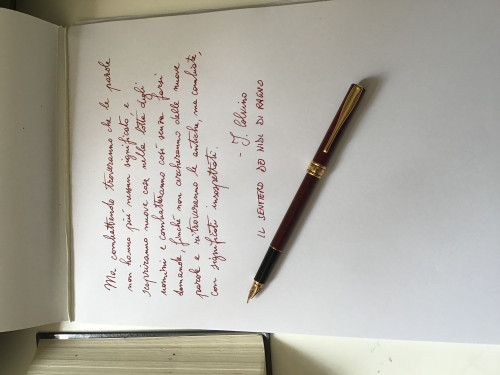 Ma combattendo troveranno che le parole
non hanno più nessun significato, e
scopriranno nuove cose nella lotta degli
uomini e combatteranno così senza farsi
domande, finché non cercheranno delle nuove
parole e ritroveranno le antiche, ma cambiate,
con significati insospettati.
- I. Calvino
IL SENTIERO DEI NIDI DI RAGNO